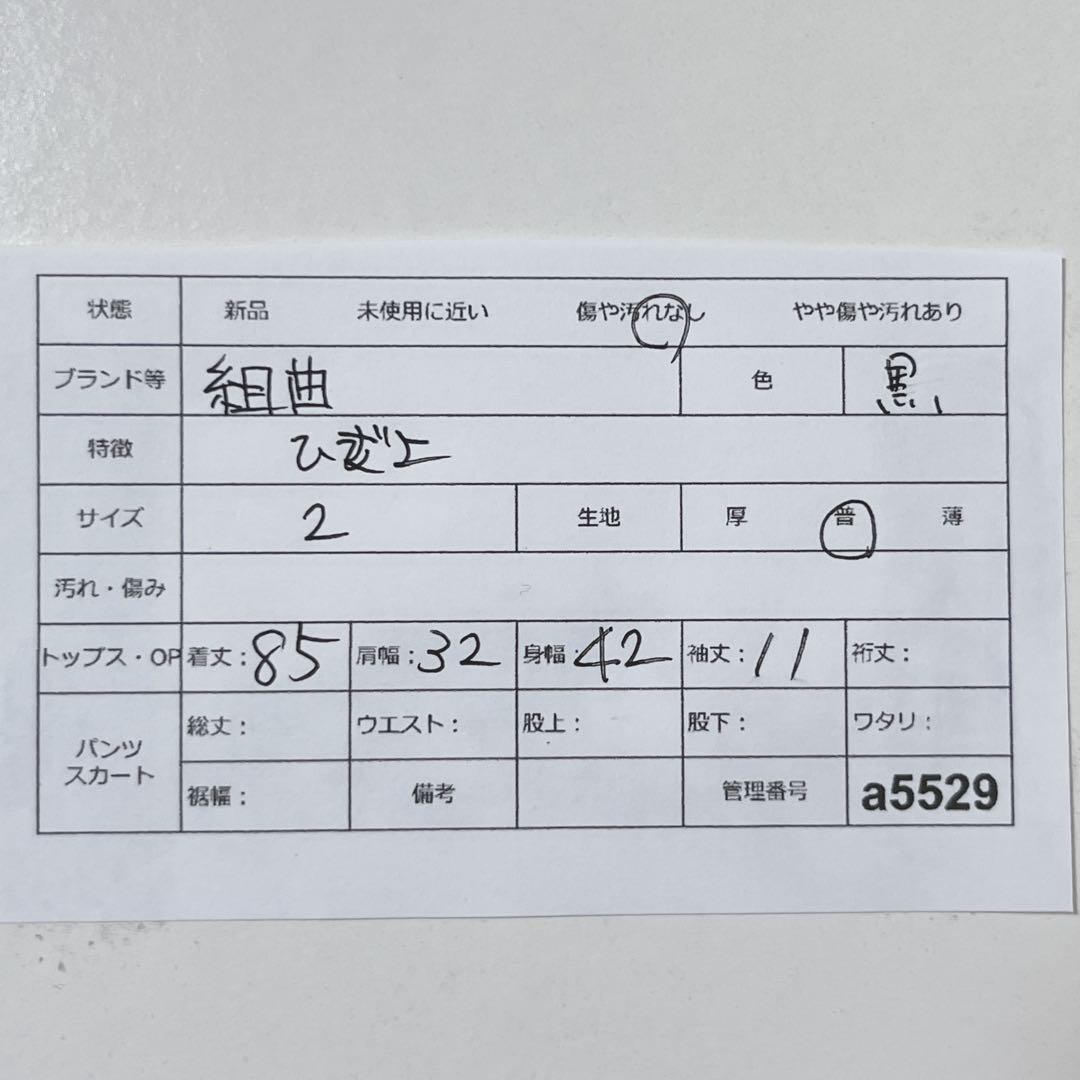 状態 新品 未使用に近い 傷や汚れなし やや傷や汚れあり
ブランド等 組曲 色 黒
特徴 ひざ上
サイズ 2 生地 厚 普 薄
汚れ・傷み
トップス・OP 着丈：85 肩幅：32 身幅：42 袖丈：11 裄丈：
パンツ
スカート
総丈： ウエスト： 股上： 股下： ワタリ：
裾幅： 備考 管理番号 a5529